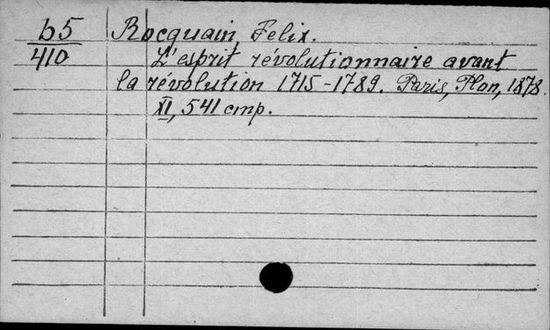 b5
410
Rocquain, Felix.
L'esprit révolutionnaire avant
la révolution 1715-1789. Paris, Plon, 1878.
XI, 541 стр.